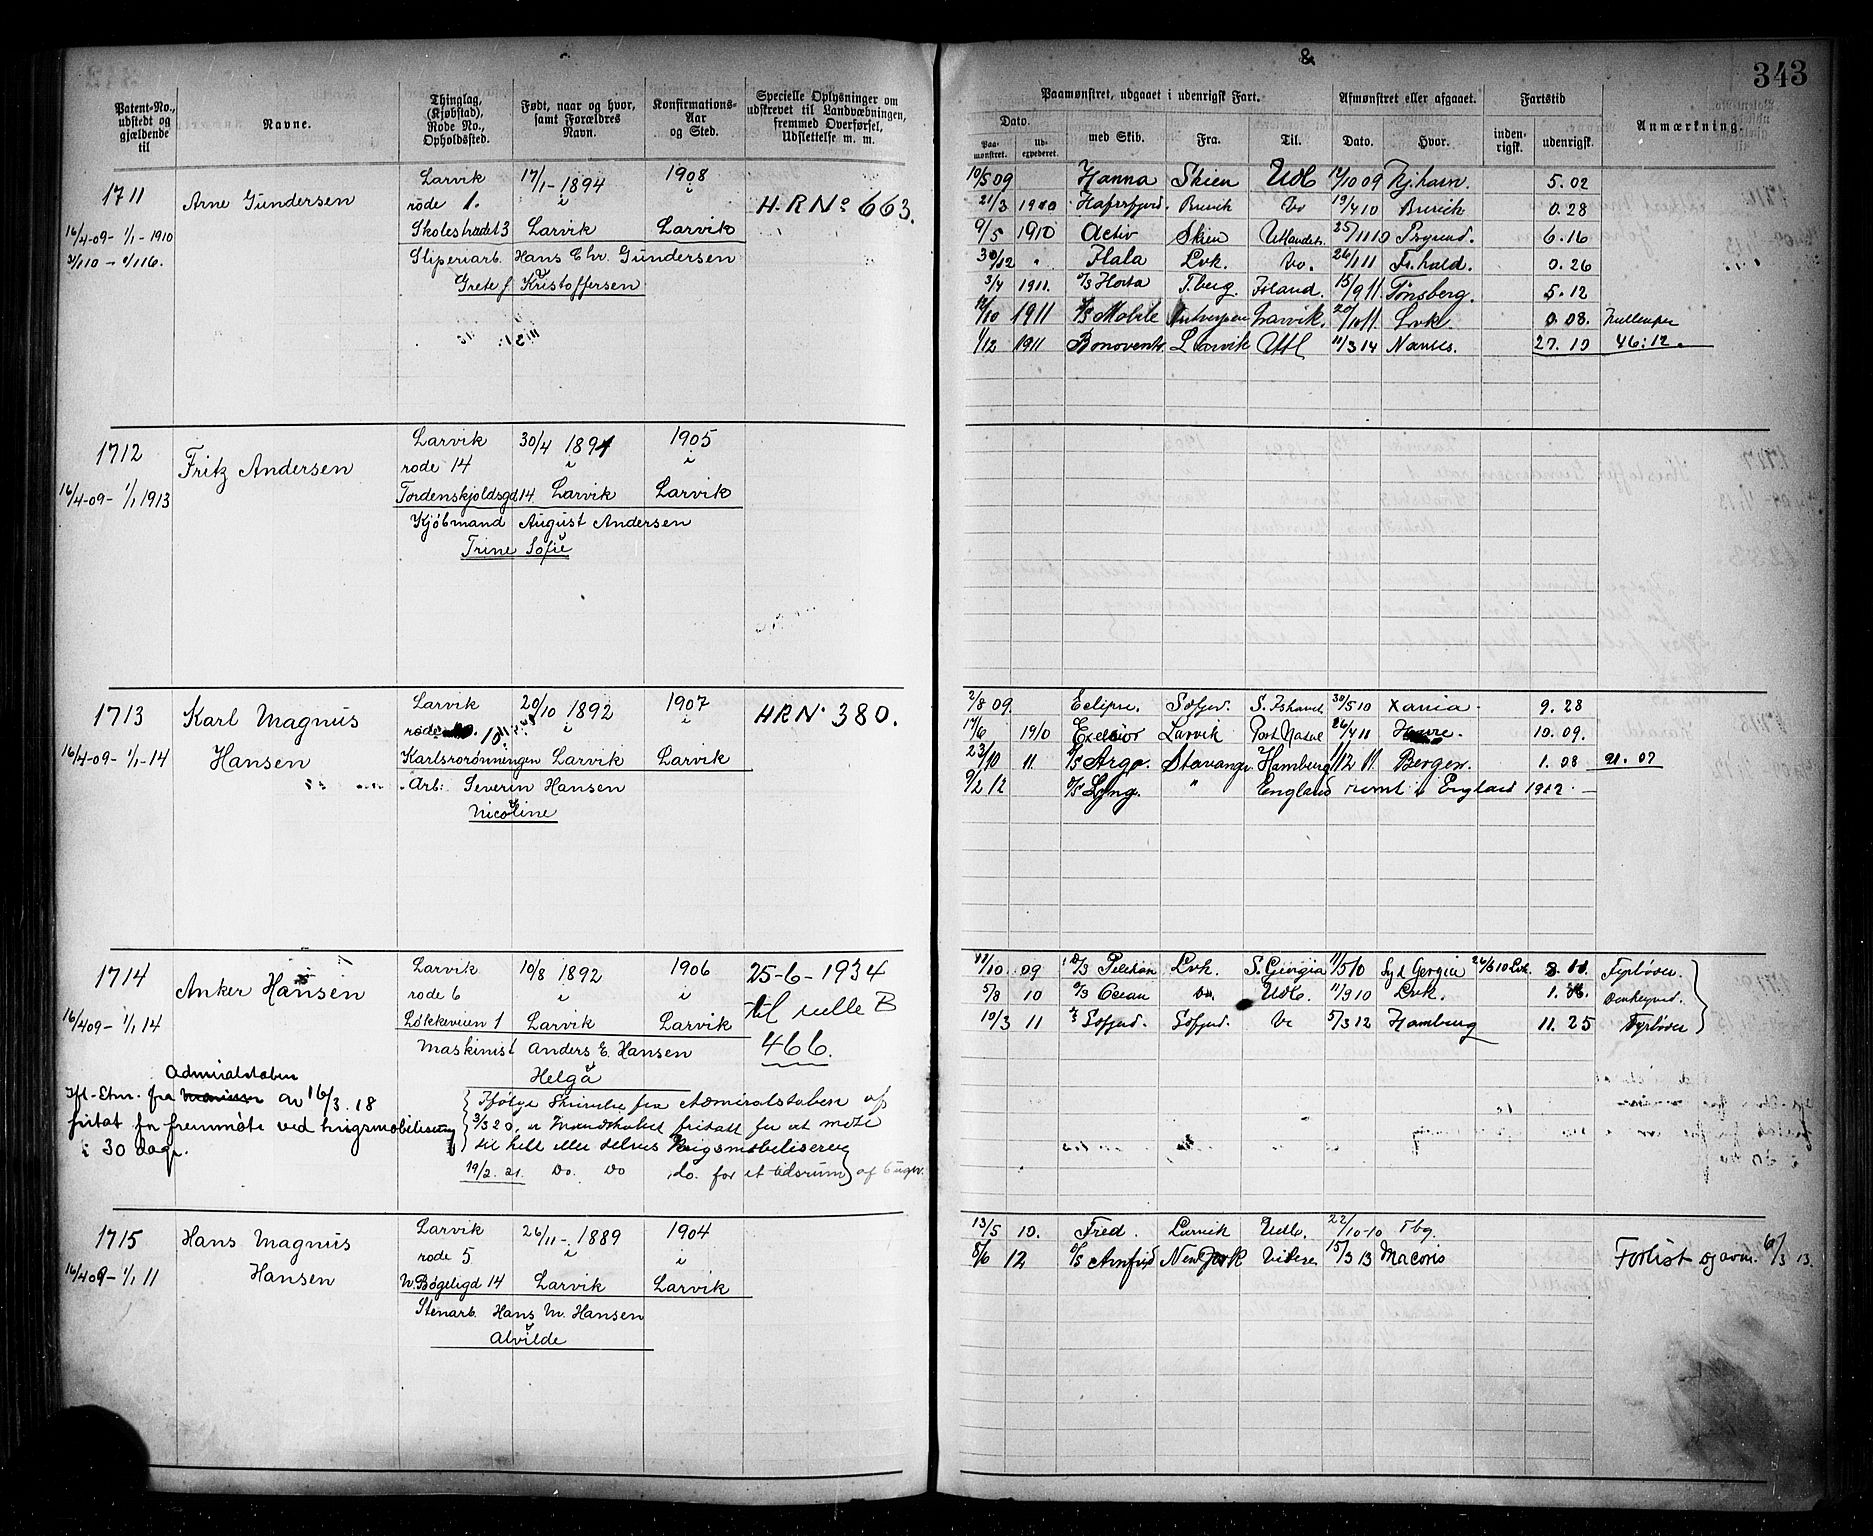 343
Patent-No., udstedt og gjældende til
Navne.
Thinglag, (Kjøbstad), Rode No., Opholdssted.
Født, naar og hvor, samt Forældres Navn.
Konfirmations-Aar og Sted.
Specielle Oplysninger om udskrevet til Landvædningen, fremmed Overførsel, Udslettelse m. m.
Paamønstret, udgaaet i udenrigsk Fart.
Afmønstret eller afgaaet.
Fartstid
Anmærkning.
Dato.
Paa-mønstret.
Ud-expederet.
med Skib.
Fra.
Til.
Dato.
Hvor.
inden-rigsk.
udenrigsk.
1711
Arne Gundersen
Larvik 17/1-1894 1908
rode 1. i i
H.R No 663.
16/4-09- 1/1-1910
Skolestrædet 3 Larvik Larvik
Sliperiarb. Hans Chr. Gundersen
Grete f. Kristoffersen
10/5 09 Hanna Skien Udl 12/10 09 Kj.havn. 5.02
21/3 1910 Hafrsfjord Brevik Do 19/4 10 Brevik 0.28
9/5 1910 Activ Skien Utlandet 25/11 10 6.16
30/12 " Hala Lvk. Do. 26/1 11 Fr.hald. 0.26
3/4 1911. Horta T.berg. Island. 15/9 11 Tønsberg. 5.12
12/10 1911 D/S Mobile Antverpen Larvik. 20/10 11 Lvk. 0.08.
1/12 1911 Larvik Utl 11/3 14 27.10 46:12.
1712
Fritz Andersen
Larvik 30/4 1891 1905
rode 14 i i
16/4-09- 1/1 1913
Tordenskjoldsgd 14 Larvik Larvik
Kjøbmand August Andersen
Trine Sofie
1713
Karl Magnus Hansen
Larvik 20/10 1892 1907
rode 10 i
H R N. 380.
16/4-09- 1/1-14
Larvik Larvik
Arb: Severin Hansen
Nicoline
2/8 09. Eclipse. 30/5 10 Xania. 9.28
17/6 1910 Excelsior Larvik Port Natal 26/4 11 10.09.
23/10 11 D/S Argo. Stavanger Hamburg 11/12 11 Bergen. 1.08 21.07
9/2 12 " England rømt i England 1912.
1714
Anker Hansen
Larvik 10/8 1892 1906
rode 6 i i
25-6-1934
til rulle B
466.
16/4 09- 1/1 14
Løkkeveien 1 Larvik Larvik
Maskinist Anders E. Hansen
Helga
Admiralstaben
Ifl. fra av 16/3. 18
fritat for fremmøte ved krigsmobilisering
i 30 dage.
Ifølge Skrivelse fra Admiralstaben af
3/3 20, er Mandskabet fritatt for at møte
til helt eller delvis Krigsmobilisering
19/2. 21. Do. Do do. for et tidsrum af 6 uger.
10 09 Pelikan Lvk. S. Georgia 11/5 10 Syd Gergia Fyrbøter.
5/8 10 D/S Ocean Do. Udl. 11/9 10 Lvk.
10/3 11 5/3 12 Hamburg 11.25 Fyrbøter
1715
Hans Magnus Hansen
Larvik 26/11-1889 1904
rode 5 i i
16/4 09- 1/1 11
N. Bøgeligd 14 Larvik Larvik
Stenarb. Hans M. Hansen
Alvilde
13/5 10. Fred. Larvik Udl. 22/10-10 Tbg.
5/6 12 New York Videre 15/3 13 Macoris Forlist 6/3 13.